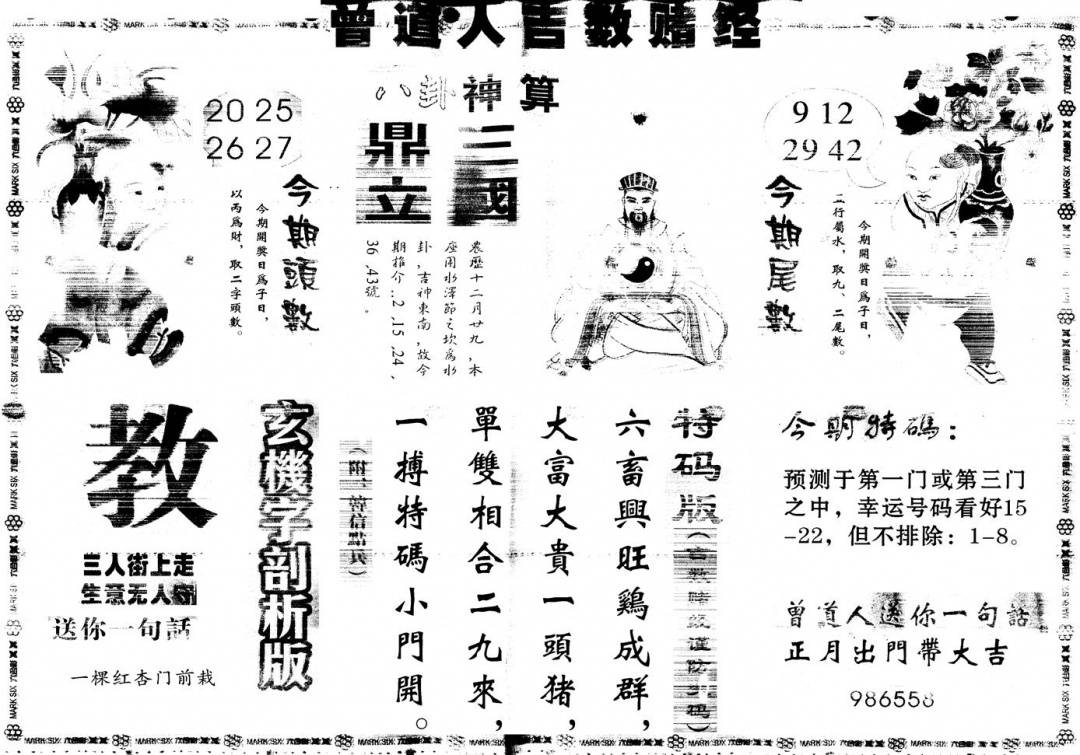 曾道人吉数赌经
八卦神算
20 25
26 27
今期頭數
今期開獎日爲子日，
以丙爲財，取二字頭數。
三國
鼎立
農歷十二月廿九，本
座用水澤節之坎爲水
卦，吉神東南，故今
期推介：2、15、24、
36、43號。
9 12
29 42
今期尾數
今期開獎日爲子日，
行屬水，取九、二尾數。
教
三人街上走
生意无人
送你一句話
一棵红杏门前栽
玄機字剖析版
特码版
六畜興旺鷄成群，
大富大貴一頭猪，
單雙相合二九來，
一搏特碼小門開。
今期特碼：
预测于第一门或第三门
之中，幸运号码看好15
-22，但不排除：1-8。
曾道人送你一句話
正月出門帶大吉
986558
MARK SIX 六合彩